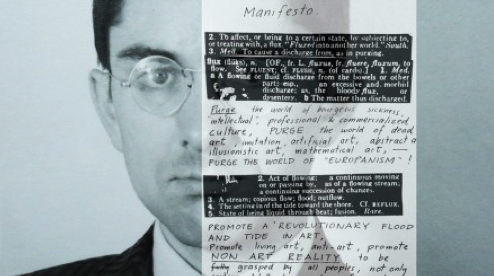 Manifesto.
2. To affect, or bring to a certain state, by subjecting to,
or treating with, a flux. "Fluxed into another world." South.
3. Med. To cause a discharge from, as in purging.
flux (flŭks), n. [OF., fr. L. fluxus, fr. fluere, fluxum, to
flow. See FLUENT; cf. FLUSH, n. (of cards).] 1. Med.
a A flowing or fluid discharge from the bowels or other
part: esp., an excessive and morbid
discharge: as, the bloody flux, or
dysentery. b The matter thus discharged.
Purge the world of bourgeois sickness,
"intellectual", professional & commercialized
culture, PURGE the world of dead
art, imitation, artificial art, abstract art,
illusionistic art, mathematical art, —
PURGE THE WORLD OF "EUROPANISM"!
2. Act of flowing: a continuous moving
on or passing by, as of a flowing stream;
a continuing succession of changes.
3. A stream; copious flow; flood; outflow.
4. The setting in of the tide toward the shore. Cf. REFLUX.
5. State of being liquid through heat; fusion. Rare.
PROMOTE A REVOLUTIONARY FLOOD
AND TIDE IN ART,
Promote living art, anti-art, promote
NON ART REALITY to be
fully grasped by all peoples, not only